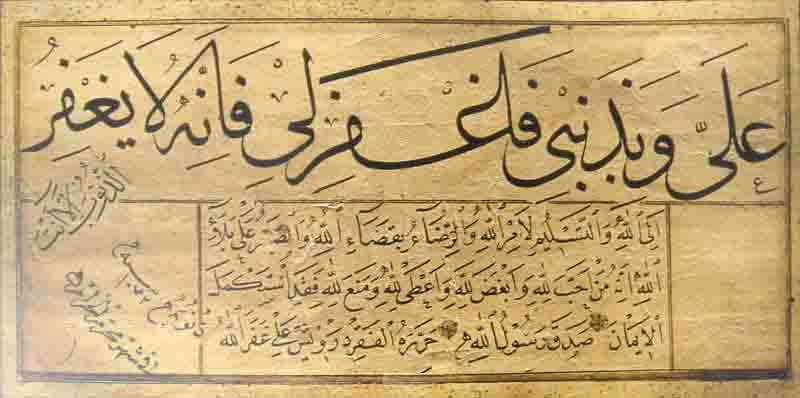 عَلَيَّ وَبِذَنْبِي فَاغْفِرْ لِي فَاِنَّهُ لَا يَغْفِرُ
الذُّنُوبَ اِلَّا اَنْتَ
اِلَى اللهِ وَالتَّسْلِيمِ لِاَمْرِ اللهِ وَالرِّضَاءِ بِقَضَاءِ اللهِ وَالصَّبْرُ عَلَى بَلَاءِ
اللهِ اِنَّهُ مَنْ اَحَبَّ لِلهِ وَاَبْغَضَ لِلهِ وَاَعْطَى لِلهِ وَمَنَعَ لِلهِ فَقَدِ اسْتَكْمَلَ
الْاِيمَانَ صَدَقَ رَسُولُ اللهِ حَرَّرَهُ الْفَقِيرُ دَرْوِيش عَلِي غَفَرَ اللهُ